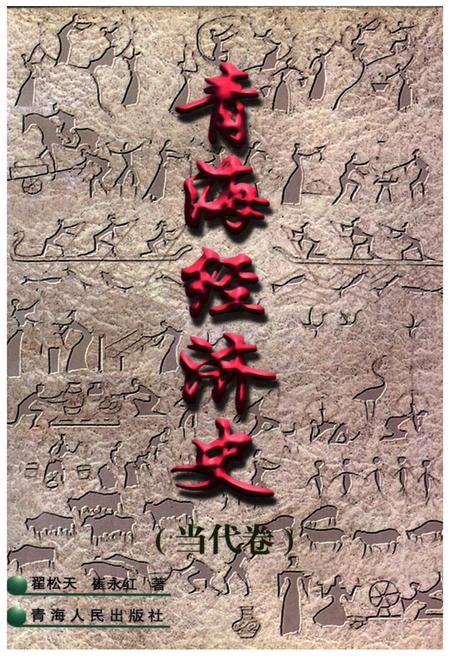 青海经济史
(当代卷)
翟松天 崔永红 著
青海人民出版社